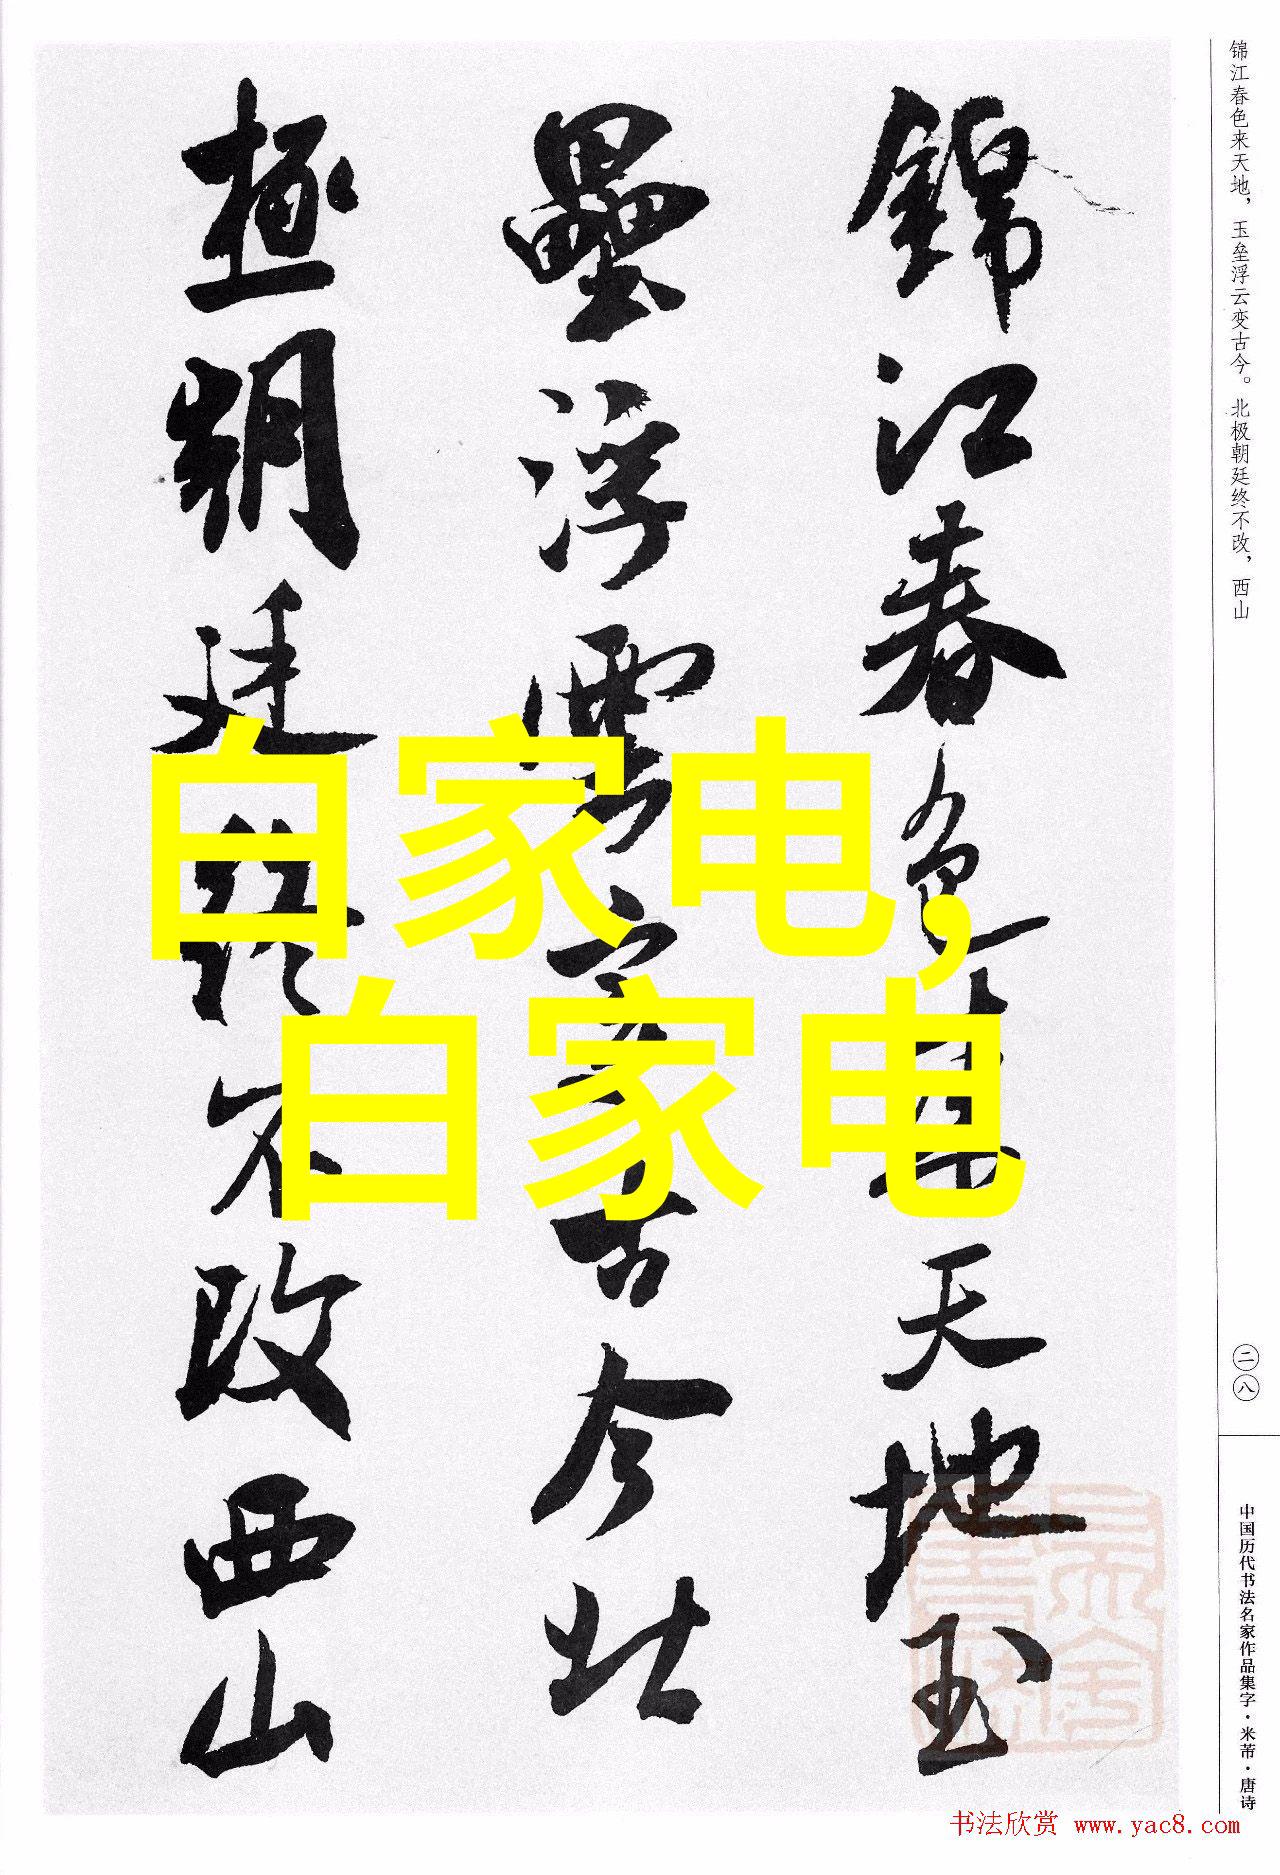 锦江春色来天地，玉垒浮云变古今。北极朝廷终不改，西山
錦江春色來天地玉
壘浮雲變古今北
極朝廷終不改西山
白家电,
白家电
二八
中国历代书法名家作品集字·米芾·唐诗
书法欣赏 www.yac8.com